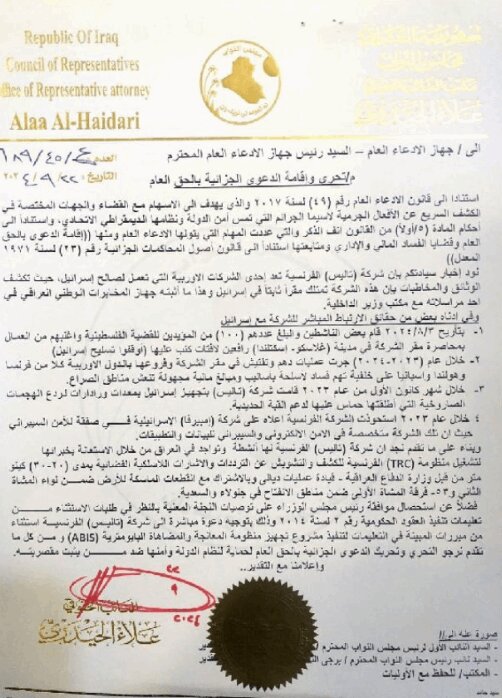 Republic Of Iraq
Council of Representatives
Office of Representative attorney
Alaa Al-Haidari
مجلس النواب
علاء الحيدري
العدد / ع/٤٥/١٨٩
التاريخ: ٢٢/٩/٢٠٢٤
الى / جهاز الادعاء العام – السيد رئيس جهاز الادعاء العام المحترم
م/تحري واقامة الدعوى الجزائية بالحق العام
استنادا الى قانون الادعاء العام رقم (٤٩) لسنة ٢٠١٧ والذي يهدف الى الاسهام مع القضاء والجهات المختصة في
الكشف السريع عن الأفعال الجرمية لاسيما الجرائم التي تمس أمن الدولة ونظامها الديمقراطي الاتحادي، واستنادا الى
أحكام المادة (٥/أولا) من القانون انف الذكر والتي عددت المهام التي يتولها الادعاء العام ومنها ((إقامة الدعوى بالحق
العام وقضايا الفساد المالي والإداري ومتابعتها استنادا الى قانون أصول المحاكمات الجزائية رقم (٢٣) لسنة ١٩٧١
المعدل))
نود إخبار سيادتكم بان شركة (تاليس) الفرنسية تعد إحدى الشركات الاوربية التي تعمل لصالح إسرائيل، حيث تكشف
الوثائق والمخاطبات بإن هذه الشركة تمتلك مقراً ثابتا في إسرائيل وهذا ما أثبته جهاز المخابرات الوطني العراقي في
احد مراسلاته مع مكتب وزير الداخلية.
وفي ادناه بعض من حقائق الارتباط المباشر للشركة مع اسرائيل
١- بتاريخ ٢٠٢٤/٨/٣ قام بعض الناشطين والبالغ عددهم (١٠٠) من المؤيدين للقضية الفلسطينية واغلبهم من العمال
بمحاصرة مقر الشركة في مدينة (غلاسكو- اسكتلندا) رافعين لافتات كتب عليها (أوقفوا تسليح إسرائيل)
٢- خلال عام (٢٠٢٣-٢٠٢٤) جرت عمليات دهم وتفتيش في مقر الشركة وفروعها بالدول الاوربية كلا من فرنسا
وهولندا واسبانيا على خلفية تهم فساد لاسلحة باساليب ومبالغ مالية مجهولة تنعش مناطق الصراع.
٣- خلال شهر كانون الأول من عام ٢٠٢٣ قامت شركة (تاليس) بتجهيز إسرائيل بمعدات ورادارات لردع الهجمات
الصاروخية التي أطلقتها حماس عليها لدعم القبة الحديدية.
٤ خلال عام ٢٠٢٣ استحوذت الشركة الفرنسية اعلاه على شركة (امبيرفا) الاسرائيلية في صفقة للأمن السيبراني
حيث ان تلك الشركة متخصصة في الامن الالكتروني والسيبراني للبيانات والتطبيقات.
وبناء على ماتقدم نجد ان شركة (تاليس) الفرنسية لها أنشطة وتواجد في العراق من خلال الاستعانة بخبراتها
لتشغيل منظومة (TRC) الفرنسية للكشف والتشويش عن الترددات والاشارات اللاسلكية الفضائية بمدى (٢٠-٣٠) كيلو
متر من قبل وزارة الدفاع العراقية - قيادة عمليات ديالى وبالاشتراك مع القطعات الماسكة للأرض ضمن لواء المشاة
الثاني و٥٣، فرقة المشاة الأولى ضمن مناطق الانفتاح في جلولاء والسعدية.
فضلاً عن استحصال موافقة رئيس مجلس الوزراء على توصيات اللجنة المعنية بالنظر في طلبات الاستثناء من
تعليمات تنفيذ العقود الحكومية رقم ٢ لسنة ٢٠١٤ وذلك بتوجيه دعوة مباشرة الى شركة (تاليس) الفرنسية استثناء
من مبررات المبينة في التعليمات لتنفيذ مشروع تجهيز منظومة المعالجة والمضاهاة البايومترية (ABIS) و من كل ما
تقدم نرجو التحري وتحريك الدعوى الجزائية بالحق العام لحماية لنظام الدولة وأمنها ضد من يثبت مقصريته.
وإعلامنا مع التقدير..
٢٢
٩
٢٠٢٤
النائب
علاء الحيدري
صورة عنه الى//
- السيد النائب الأول لرئيس مجلس النواب المحترم
- السيد نائب رئيس مجلس النواب المحترم / يرجى
- المكتب/ للحفظ مع الأوليات